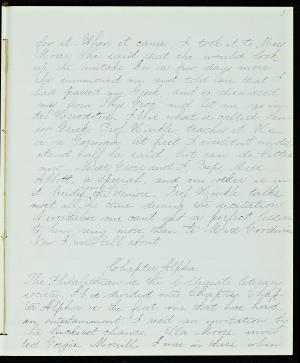 for it. When it came, I took it to Miss
Morse. She said that she would look
up the mistake. In a few days more
she summoned me and told me that I
had passed my Greek, and so dismissed
me from Phys. Geog. and let me go in-
to Herodotus. This what is called Sen-
ior Greek. Prof. Hinkle teaches it. He
is a German. At first I couldn't under-
stand half he said, but can do better
now. Will and Prep. Will
a Special, and one other is in
it besides the Seniors. Prof. Hinkle talks
most all the time during the recitations.
Nevertheless one can't get a perfect lesson
to him any more than to Will Goodwin.
Now I will tell about
Chapter Alpha
The Philalethean is the Collegiate literary
society. It is divided into Chapters. Chap-
ter Alpha is the first one that has had
an entertainment. I recd an invitation by
the luckiest chance. Ella Moore invit-
ed Georgie Morrill. I was in there when